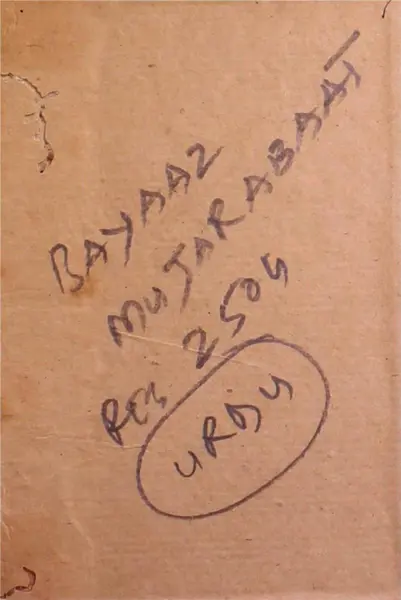 BAYAAZ
MUJARABAAT
Res 2504
URDU